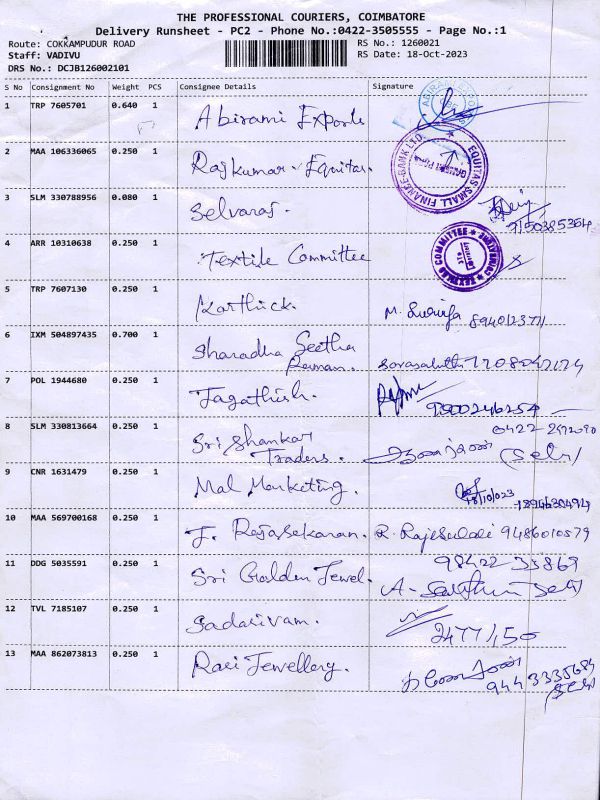 THE PROFESSIONAL COURIERS, COIMBATORE
Delivery Runsheet - PC2 - Phone No.:0422-3505555 - Page No.:1
Route: COKKAMPUDUR ROAD RS No.: 1260021
Staff: VADIVU RS Date: 18-Oct-2023
DRS No.: DCJB126002101
S No Consignment No Weight PCS Consignee Details Signature
1 TRP 7605701 0.640 1 Abirami Exports
2 MAA 106336065 0.250 1 Rajkumar - Equitas. EQUITAS SMALL FINANCE BANK LTD.
3 SLM 330788956 0.080 1 Selvaraj.
4 ARR 10310638 0.250 1 Textile Committee TEXTILES COMMITTEE
5 TRP 7607130 0.250 1 Karthick.
6 IXM 504897435 0.700 1 Sharadha Seetha
Raman.
7 POL 1944680 0.250 1 Jagathish. 9800246254
8 SLM 330813664 0.250 1 Sri Shankar
Traders.
9 CNR 1631479 0.250 1 Mal Marketing. 18/10/023
10 MAA 569700168 0.250 1 J. Rajasekaran. 9486010579
11 DDG 5035591 0.250 1 Sri Golden Jewel. 98422 33869
12 TVL 7185107 0.250 1 Sadasivam. 2477150
13 MAA 862073813 0.250 1 Rasi Jewellery. 9443335684